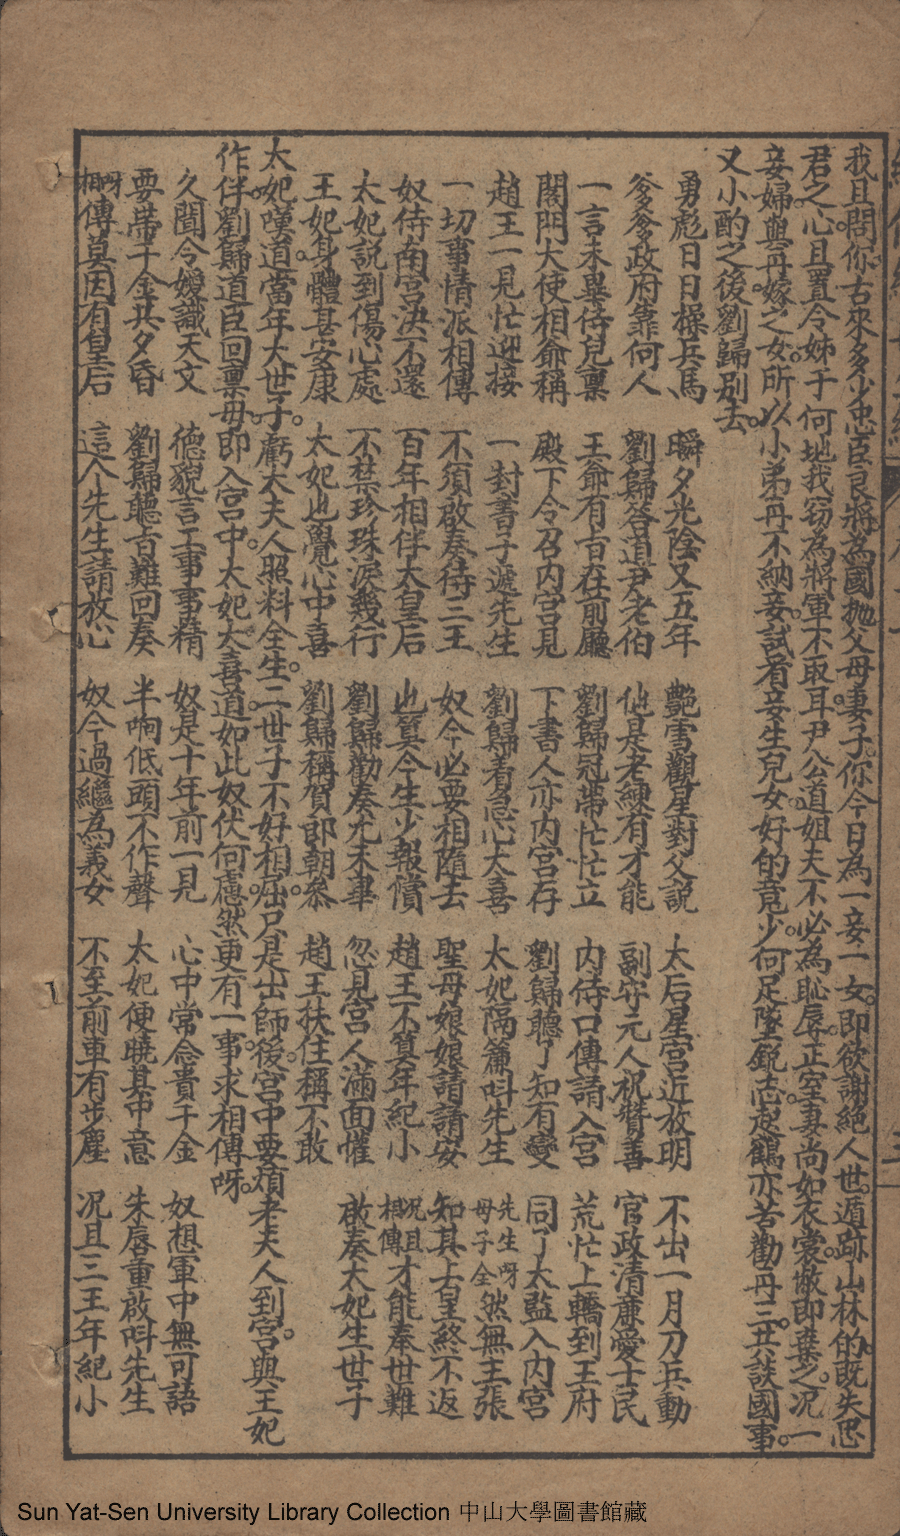 我且問你古來多少忠臣良將為國拋父母妻子。你今日為一妾一女。即欲謝絕人世。遁跡山林的。既失忠
君之心。且置令姊于何地。我窃為將軍不取耳。尹公道。姐夫不必為恥辱。正室妻尚如衣裳。敝即棄之。况一
妾婦與再嫁之女。所以小弟再不納妾。試看妾生兒女。好的竟少。何足墜銳志。趁鶴亦苦勸再三。共談國事。
又小酌之後。劉歸別去。
勇彪日日操兵馬 瞬夕光陰又五年 艷雪觀星對父說 太后星宮近放明 不出一月刀兵動
爹爹政府靠何人 劉歸答道尹老伯 他是老練有才能 副守元人祝贊善 官政清廉愛士民
一言未畢侍兒稟 王爺有旨在前廳 劉歸冠帶忙忙立 內侍口傳請入宮 荒忙上轎到王府
閣門大使相爺稱 殿下令召內宮見 下書人亦內宮存 劉歸聽了知有變 同了太監入內宮
趙王一見忙迎接 一封書子遞先生 劉歸看急心大喜 太妃隔簾呌先生 先生呀母子全然無主張
一切事情派相傳 不須啟奏待三王 奴今必要相隨去 聖母娘娘請請安 知其上皇終不返
奴侍南宮決不還 百年相伴太皇后 也算今生少報償 趙王不算年紀小 况且相傳才能奉世難
太妃說到傷心處 不禁珍珠淚幾行 劉歸勸奏尤未畢 忽見宮人滿面懽 啟奏太妃生世子
王妃身體甚安康 太妃也覺心中喜 劉歸稱賀即朝叅 趙王扶住稱不敢
太妃嘆道。當年大世子。虧太夫人照料全生。二世子不好相屈。只是出師後。宮中要煩老夫人到宮。與王妃
作伴。劉歸道。臣回稟母。即入宮中。太妃大喜道。如此奴伏何慮。然更有一事。求相傳呀。
久聞令嫒識天文 德貌言工事事精 奴是十年前一見 心中常念貴千金 奴想軍中無可語
要帶千金共夕昏 劉歸聽旨難回奏 半晌低頭不作聲 太妃便曉其中意 朱唇重啟呌先生
相呀傳莫因有皇后 這个先生請放心 奴今過繼為義女 不至前車有步塵 况且三王年紀小
Sun Yat-Sen University Library Collection 中山大學圖書館藏